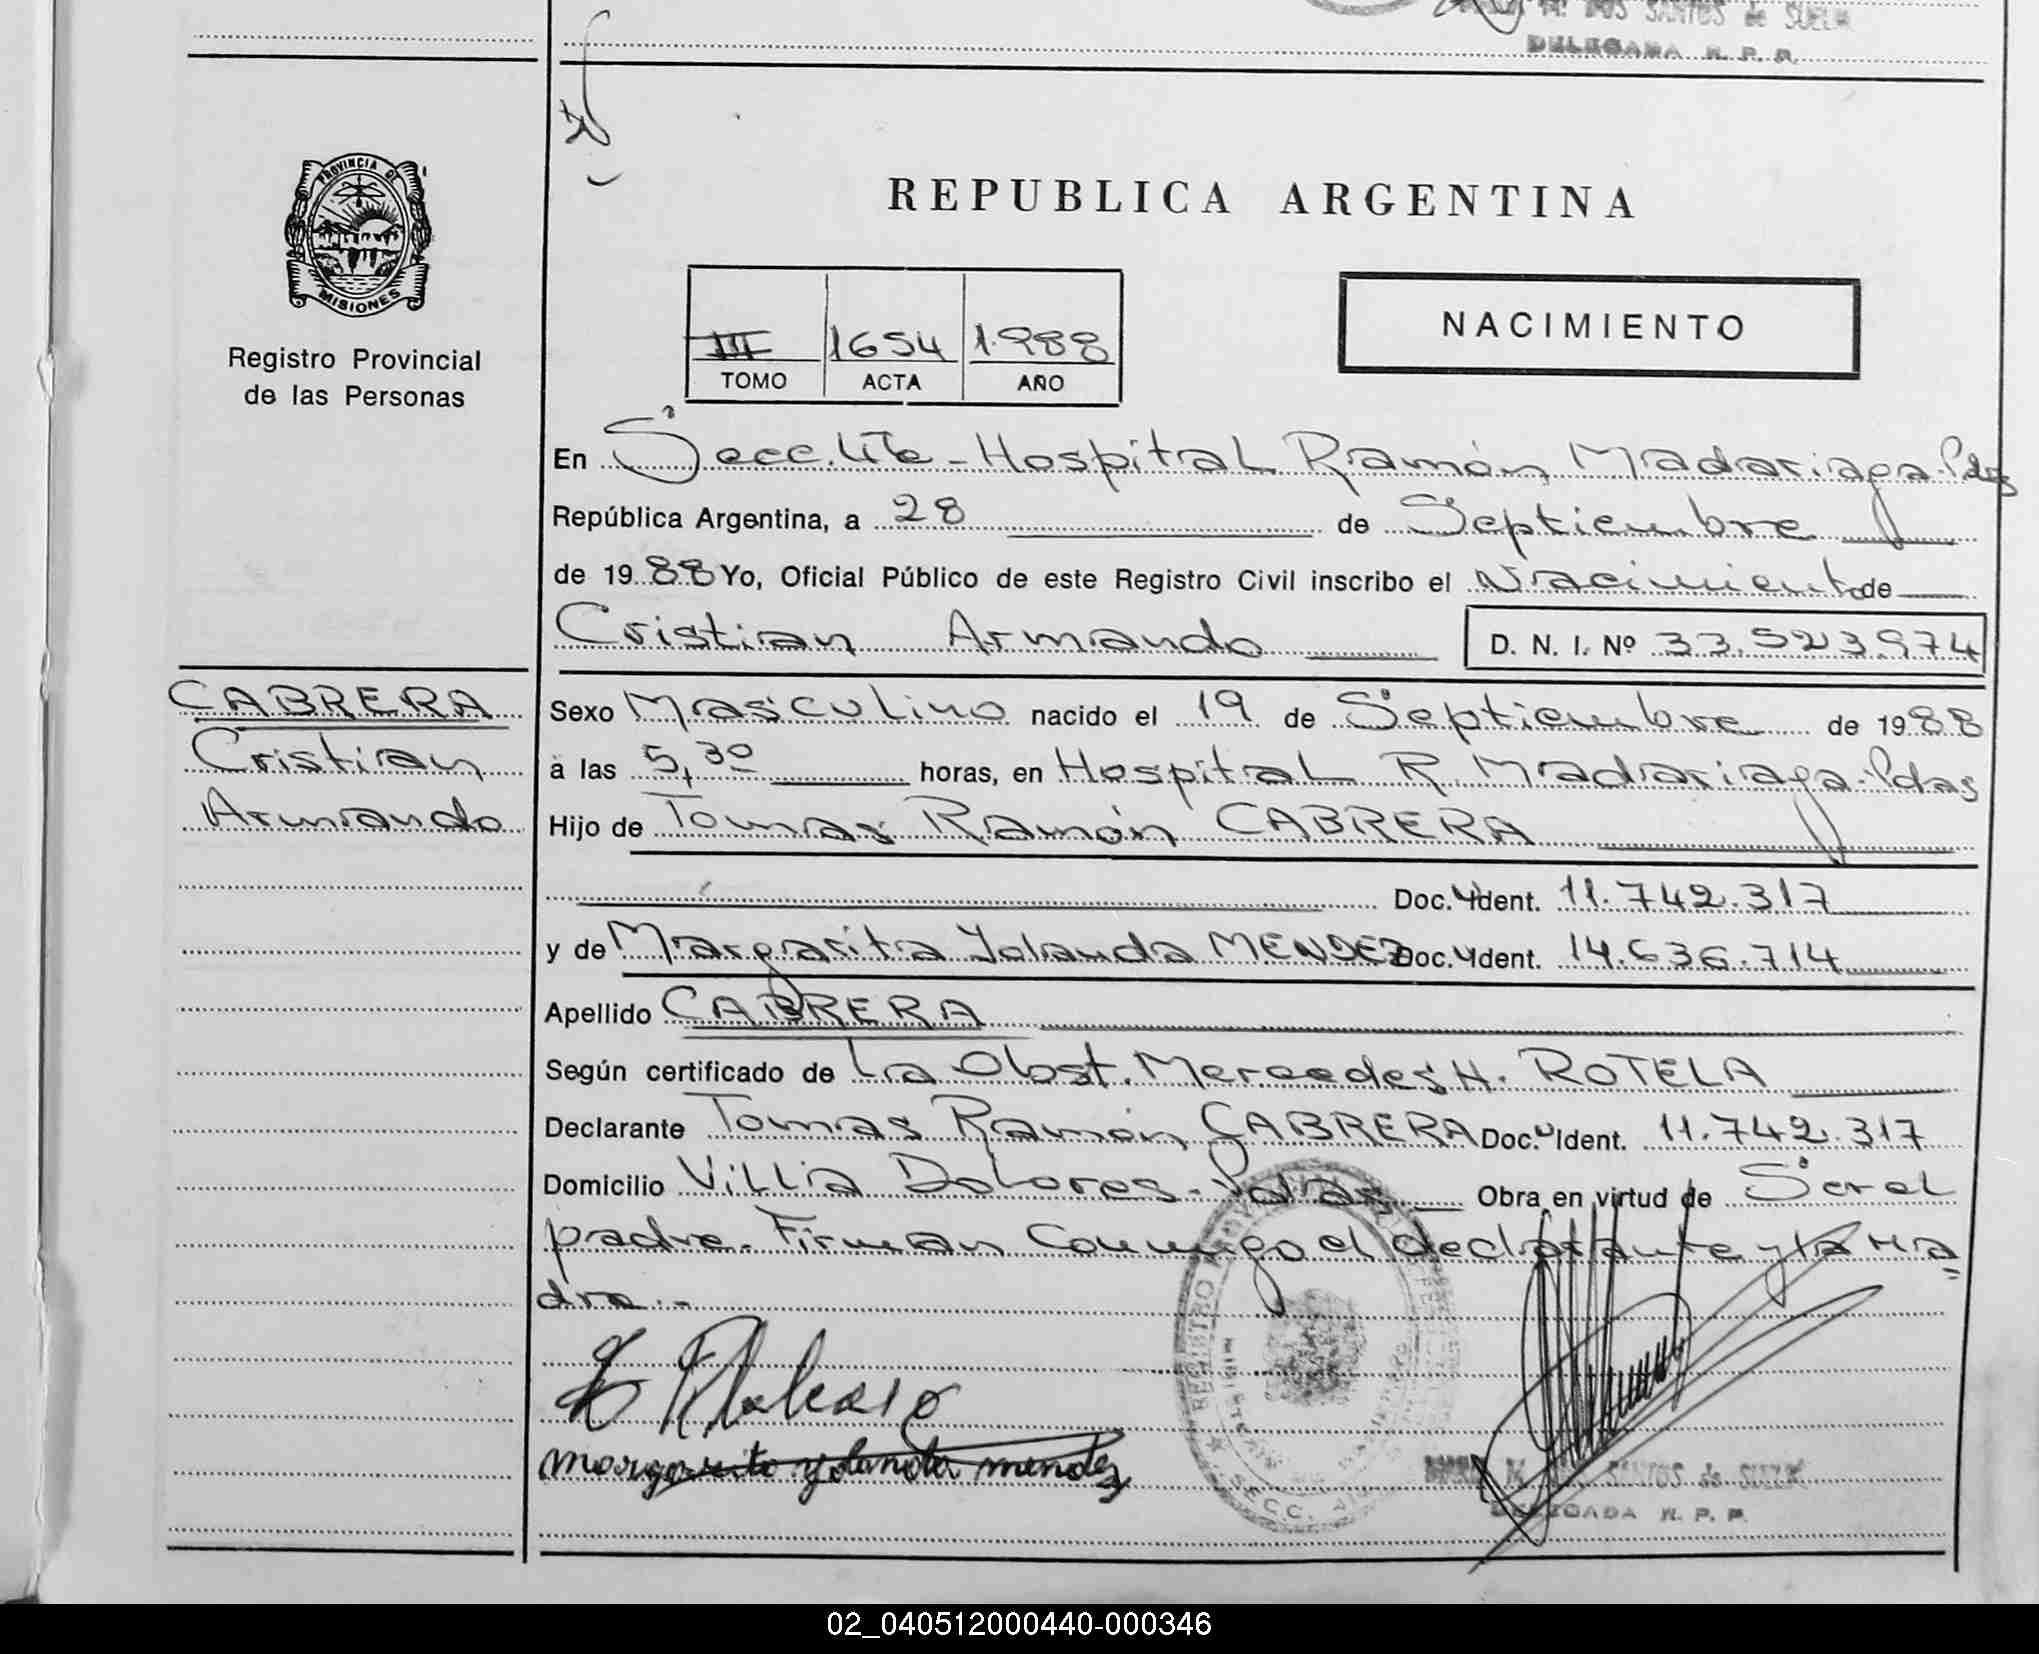 DOS SANTOS de SUELA
DELEGADA R. P. P.
PROVINCIA DE
MISIONES
Registro Provincial
de las Personas
REPUBLICA ARGENTINA
III 1654 1.988
TOMO ACTA AÑO
NACIMIENTO
En Secc. - Hospital Ramón Madariaga. Pdas
República Argentina, a 28 de Septiembre
de 1988 Yo, Oficial Público de este Registro Civil inscribo el Nacimiento de
Cristian Armando D. N. I. Nº 33.523.974
CABRERA
Cristian
Armando
Sexo Masculino nacido el 19 de Septiembre de 1988
a las 5,30 horas, en Hospital R. Madariaga. Pdas
Hijo de Tomas Ramón CABRERA
Doc. Ident. 11.742.317
y de Margarita Yolanda MENDEZ Doc. Ident. 14.636.714
Apellido CABRERA
Según certificado de La Obst. Mercedes H. ROTELA
Declarante Tomas Ramón CABRERA Doc. Ident. 11.742.317
Domicilio Villa Dolores - Pdas Obra en virtud de Ser el
padre. Firman conmigo el declarante y la ma
dre.-
margarita yolanda mendez
REGISTRO
SECC.
SANTOS de SUELA
DELEGADA R. P. P.
02_040512000440-000346